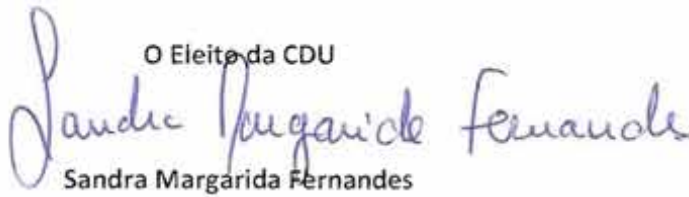 O Eleito da CDU
Sandra Margarida Fernandes
Sandra Margarida Fernandes